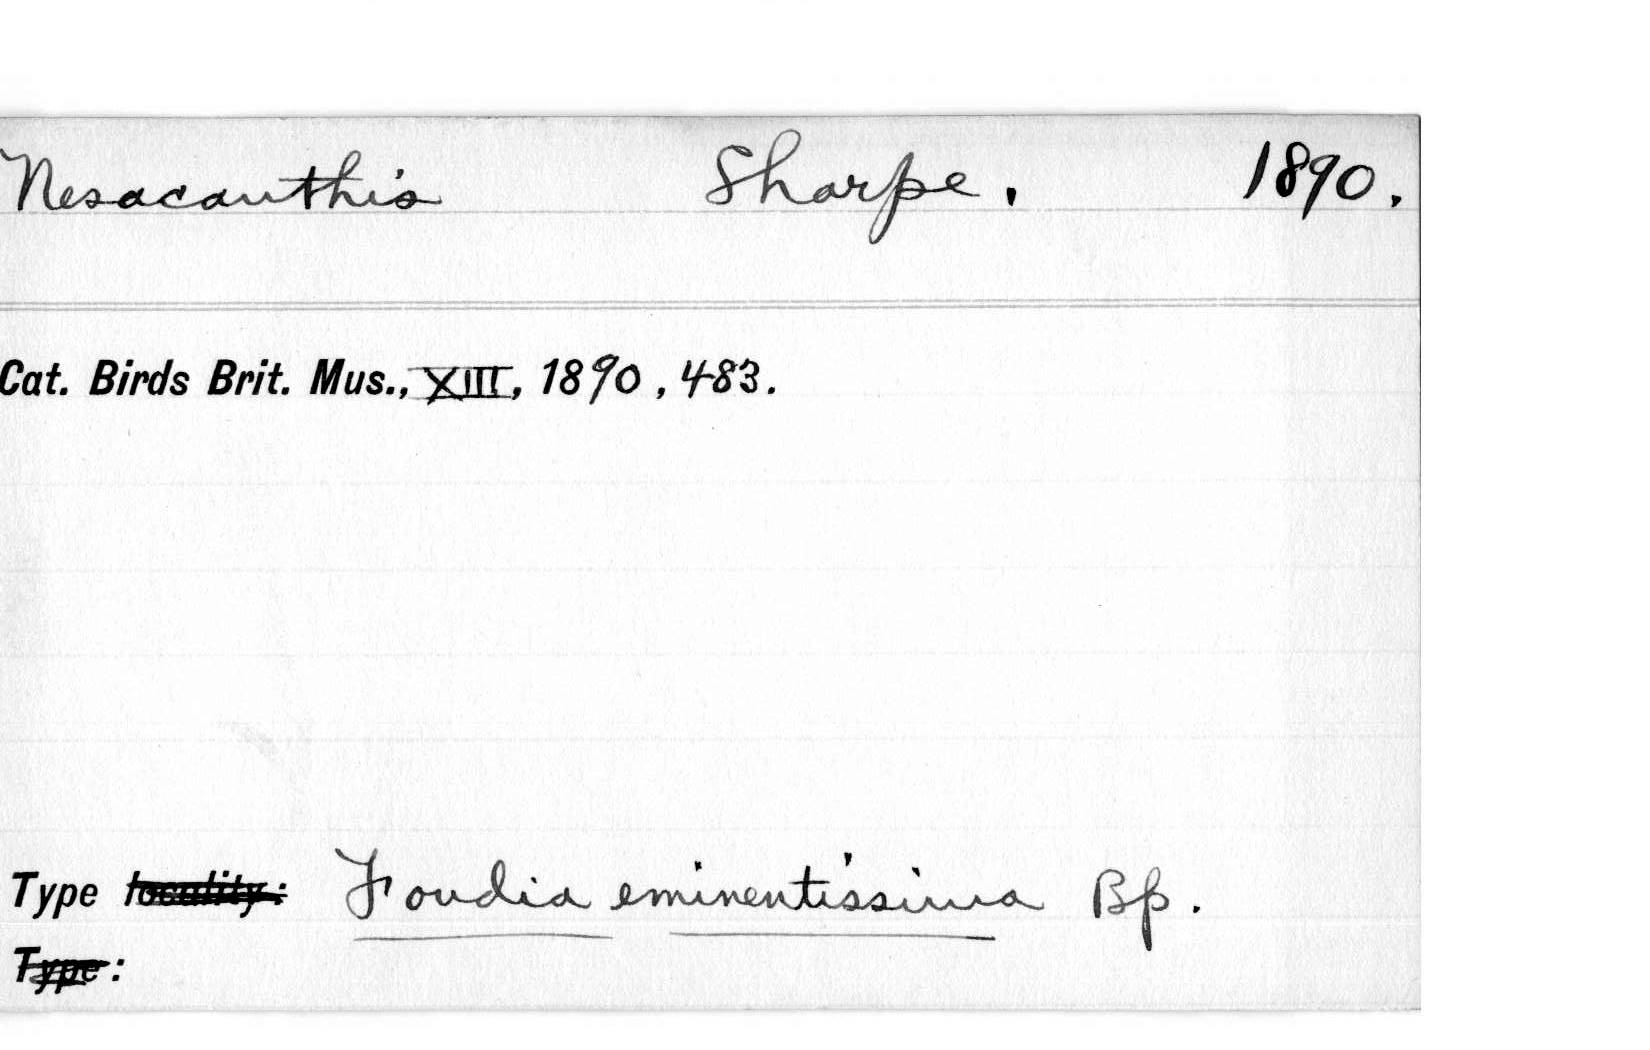 Nesacanthis Sharpe. 1890.
Cat. Birds Brit. Mus., XIII, 1890, 483.
Type locality: Foudia eminentissima Bp.
Type: